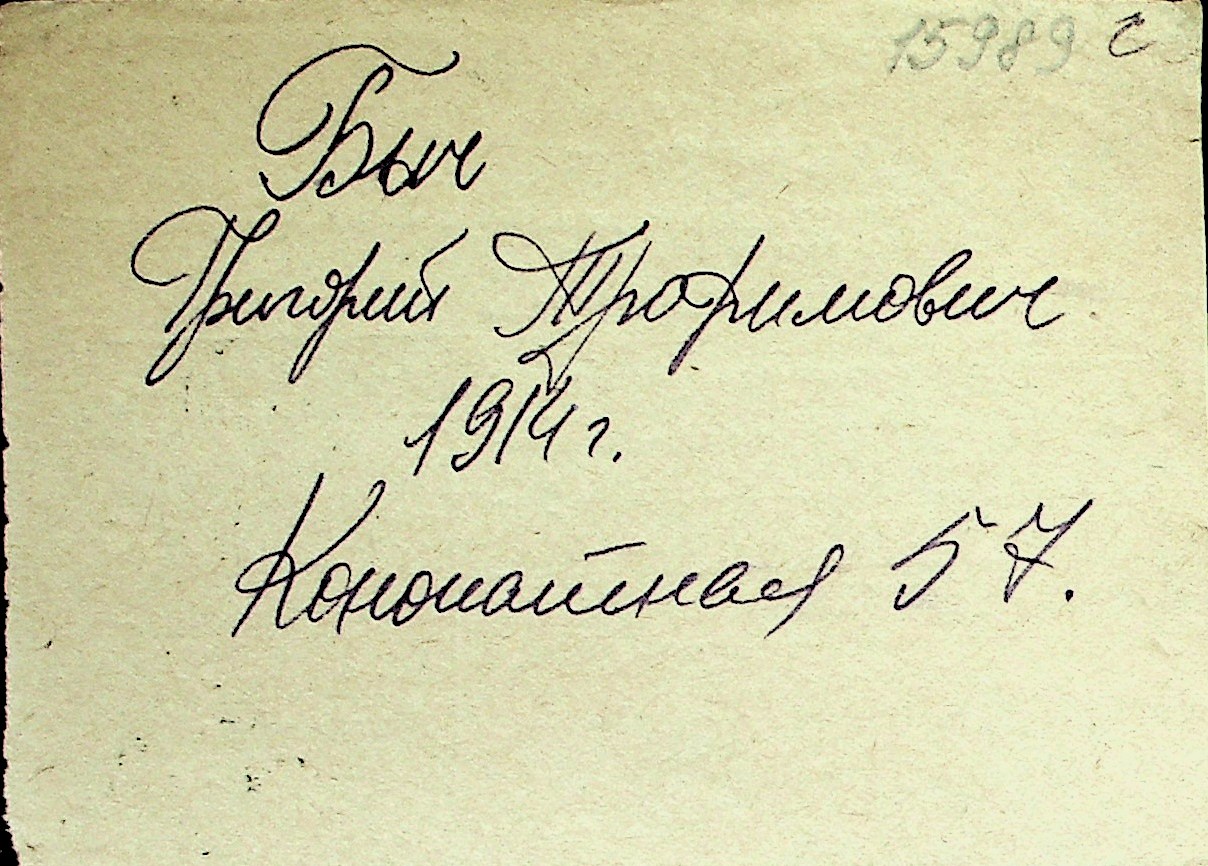 15989 с
Быч
Григорий Трофимович
1914 г.
Конопатная 57.